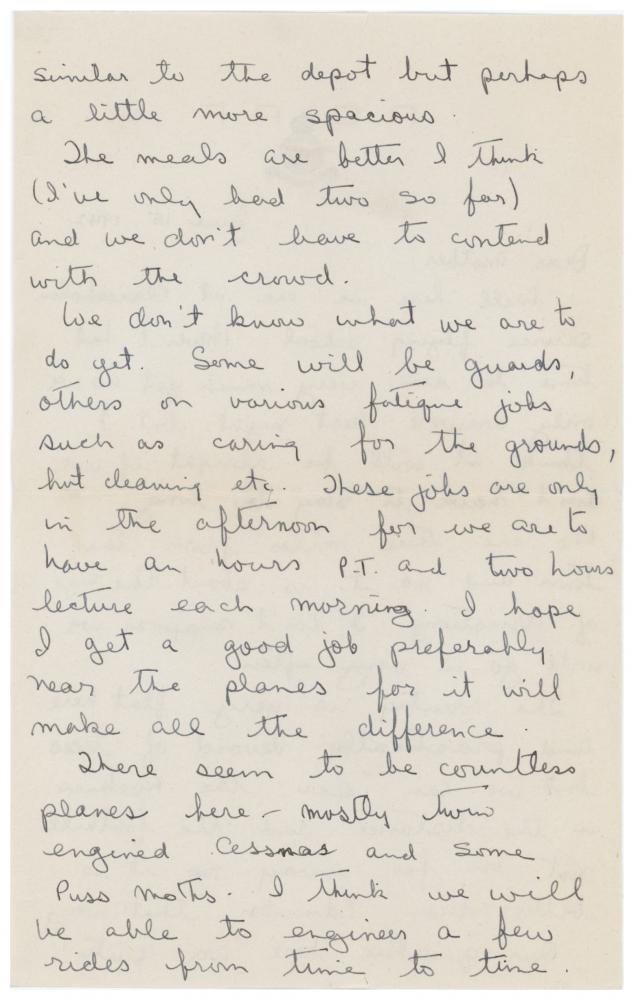 similar to the depot but perhaps
a little more spacious.
The meals are better I think
(I've only had two so far)
and we don't have to contend
with the crowd.
We don't know what we are to
do yet. Some will be guards,
others on various fatigue jobs
such as caring for the grounds,
hut cleaning etc. These jobs are only
in the afternoon for we are to
have an hours P.T. and two hours
lecture each morning. I hope
I get a good job preferably
near the planes for it will
make all the difference.
There seem to be countless
planes here - mostly twin
engined Cessnas and some
Puss moths. I think we will
be able to engineer a few
rides from time to time.